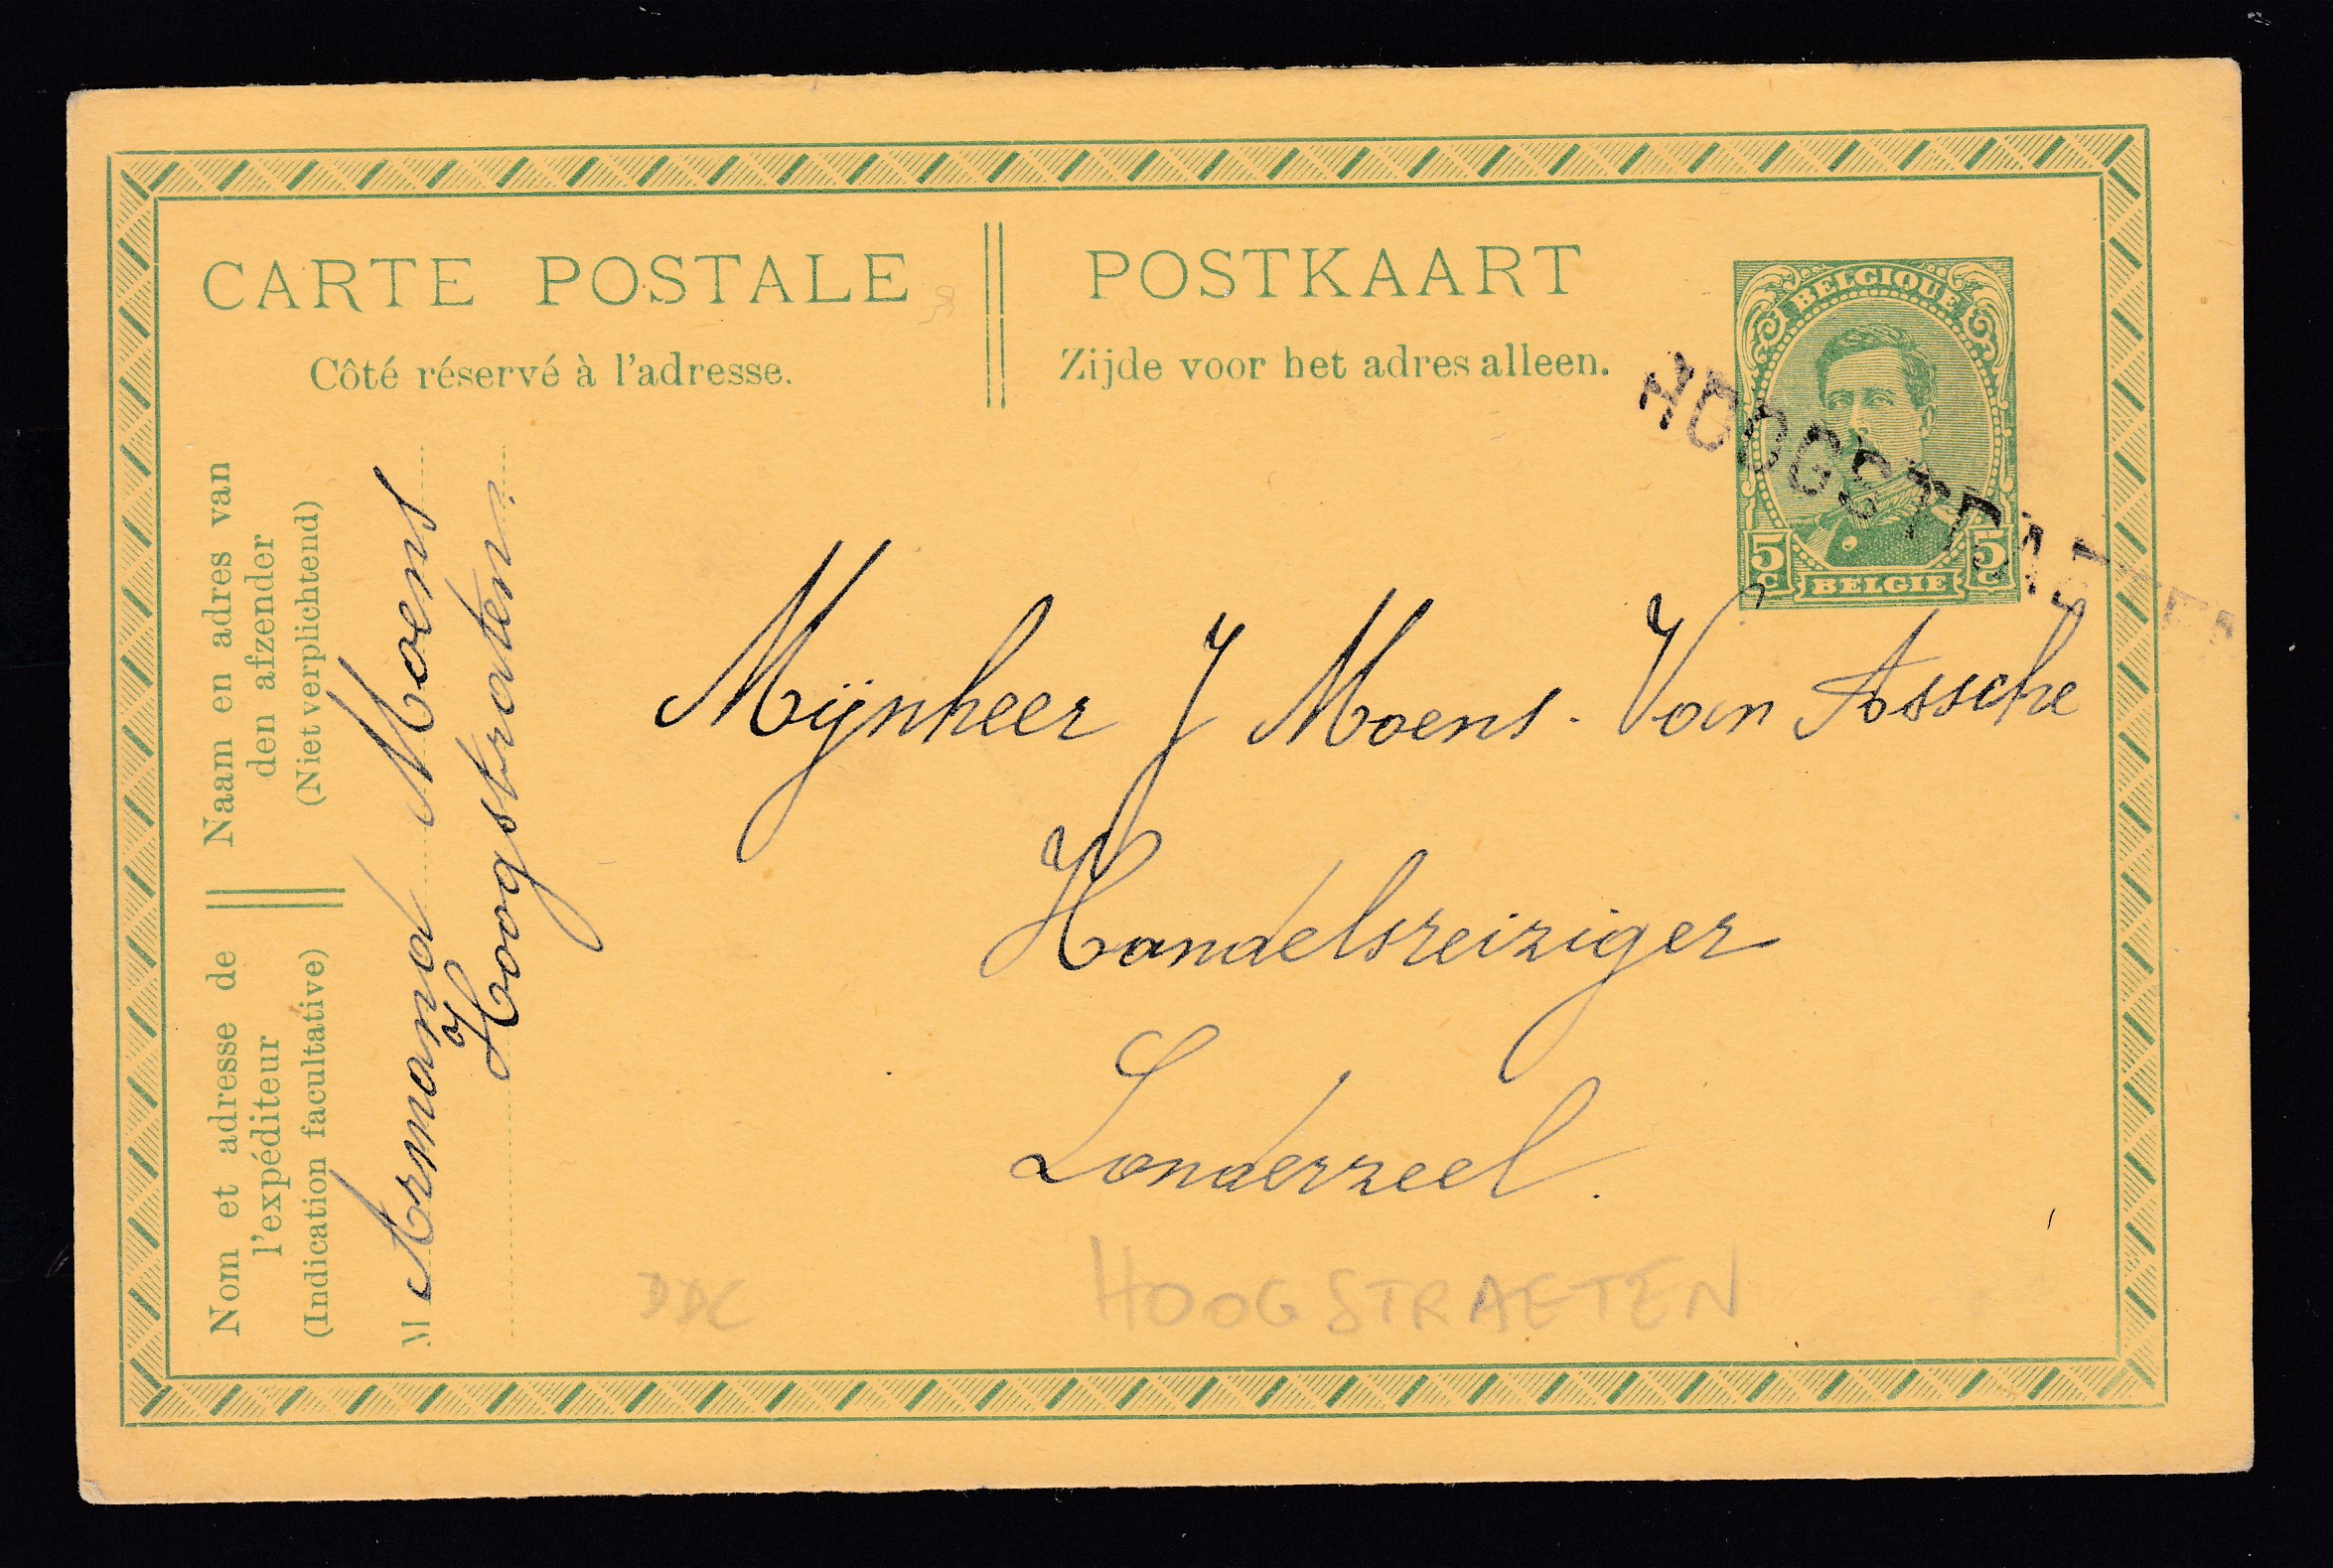 CARTE POSTALE
Côté réservé à l'adresse.
POSTKAART
Zijde voor het adres alleen.
BELGIQUE
5 C
5 C
BELGIE
HOOGSTRAETEN
Naam en adres van
den afzender
(Niet verplichtend)
Nom et adresse de
l'expéditeur
(Indication facultative)
M Armand Moens
Hoogstraten.
Mijnheer J Moens. Van Assche
Handelsreiziger
Londerzeel.
DDC
HOOGSTRAETEN